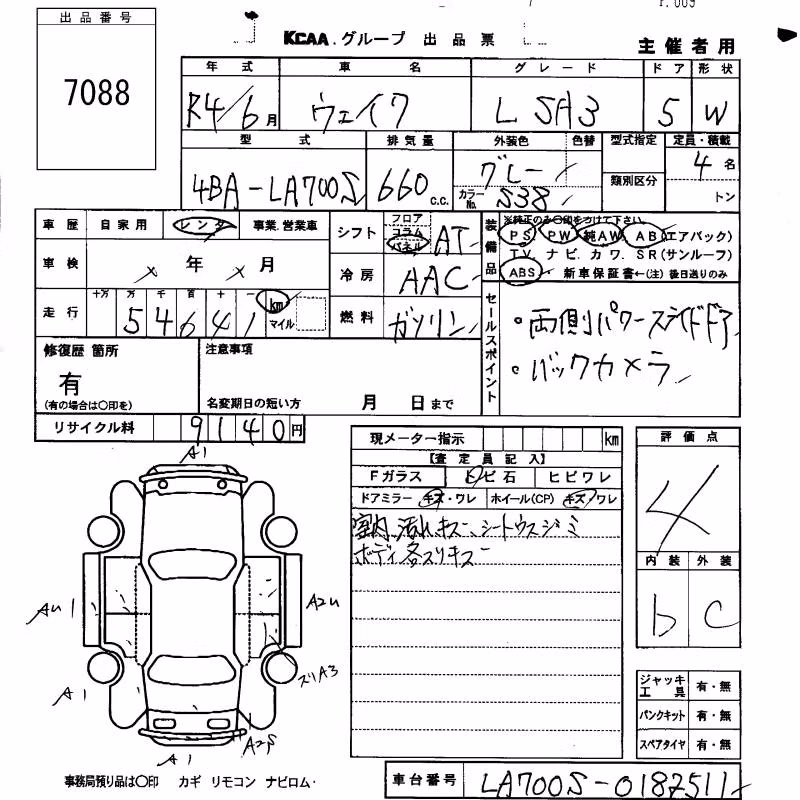 出品番号
7088
KCAA.グループ 出品票
主催者用
年式 車名 グレード ドア 形状
R4/6月 ウェイク L SA3 5 W
型式 排気量 外装色 色替 型式指定 定員・積載
4BA-LA700S 660 c.c. グレー 類別区分 4名
カラーNo. S38 トン
車歴 自家用 レンタ 事業.営業車
シフト フロア コラム パネル AT
装備品 ※純正のみ○印をつけて下さい
PS. PW 純AW. AB(エアバック)
TV. ナビ. カワ. SR(サンルーフ)
ABS 新車保証書←(注)後日送りのみ
車検 年 月
冷房 AAC
走行 十万 万 千 百 十 一
54641 km マイル
燃料 ガソリン
セールスポイント
・両側パワースライドドア
・バックカメラ
修復歴 箇所 注意事項
有
(有の場合は○印を) 名変期日の短い方 月 日まで
リサイクル料 9140円
現メーター指示 km
【査定員記入】
Fガラス トビ石 ヒビワレ
ドアミラー キズ・ワレ ホイール(CP) キズ/ワレ
室内 汚れ、キズ、シートウスジミ
ボディ各スリキズ
評価点
4
内装 外装
b C
A1
AU A2U
スリA3
A1
A1 A2S
ジャッキ工具 有・無
パンクキット 有・無
スペアタイヤ 有・無
事務局預り品は○印 カギ リモコン ナビロム・
車台番号 LA700S-0187511